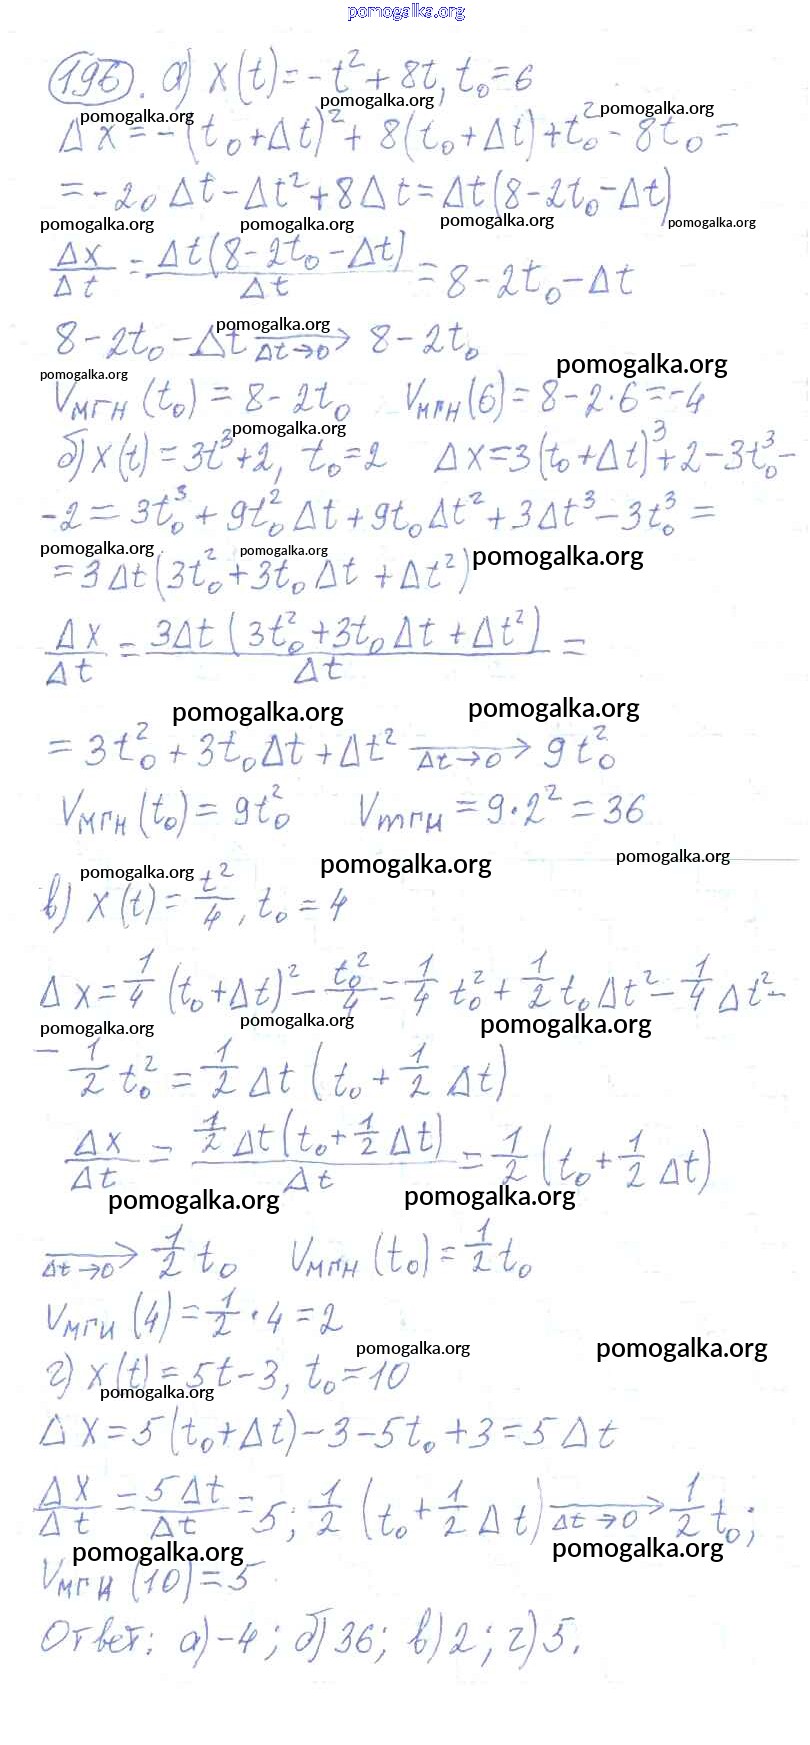 pomogalka.org
196. а) x(t) = -t² + 8t, t₀ = 6
pomogalka.org pomogalka.org pomogalka.org
Δx = -(t₀+Δt)² + 8(t₀+Δt) + t₀² - 8t₀ =
= -2₀Δt - Δt² + 8Δt = Δt(8 - 2t₀ - Δt)
pomogalka.org pomogalka.org pomogalka.org pomogalka.org
Δx/Δt = Δt(8 - 2t₀ - Δt)/Δt = 8 - 2t₀ - Δt
pomogalka.org
8 - 2t₀ - Δt →(Δt→0) 8 - 2t₀
pomogalka.org pomogalka.org
Vмгн(t₀) = 8 - 2t₀ Vмгн(6) = 8 - 2·6 = -4
pomogalka.org
б) x(t) = 3t³ + 2, t₀ = 2 Δx = 3(t₀+Δt)³ + 2 - 3t₀³ -
- 2 = 3t₀³ + 9t₀²Δt + 9t₀Δt² + 3Δt³ - 3t₀³ =
pomogalka.org pomogalka.org pomogalka.org
= 3Δt(3t₀² + 3t₀Δt + Δt²)
Δx/Δt = 3Δt(3t₀² + 3t₀Δt + Δt²)/Δt =
pomogalka.org pomogalka.org
= 3t₀² + 3t₀Δt + Δt² →(Δt→0) 9t₀²
Vмгн(t₀) = 9t₀² Vмгн = 9·2² = 36
pomogalka.org pomogalka.org pomogalka.org
в) x(t) = t²/4, t₀ = 4
Δx = 1/4 (t₀+Δt)² - t₀²/4 = 1/4 t₀² + 1/2 t₀Δt² - 1/4 Δt² -
pomogalka.org pomogalka.org pomogalka.org
- 1/2 t₀² = 1/2 Δt (t₀ + 1/2 Δt)
Δx/Δt = 1/2 Δt(t₀ + 1/2 Δt)/Δt = 1/2 (t₀ + 1/2 Δt)
pomogalka.org pomogalka.org
→(Δt→0) 1/2 t₀ Vмгн(t₀) = 1/2 t₀
Vмгн(4) = 1/2 · 4 = 2
pomogalka.org pomogalka.org
г) x(t) = 5t - 3, t₀ = 10
pomogalka.org
Δx = 5(t₀+Δt) - 3 - 5t₀ + 3 = 5Δt
Δx/Δt = 5Δt/Δt = 5; 1/2 (t₀ + 1/2 Δt) →(Δt→0) 1/2 t₀;
pomogalka.org pomogalka.org
Vмгн(10) = 5
Ответ: а) -4; б) 36; в) 2; г) 5.